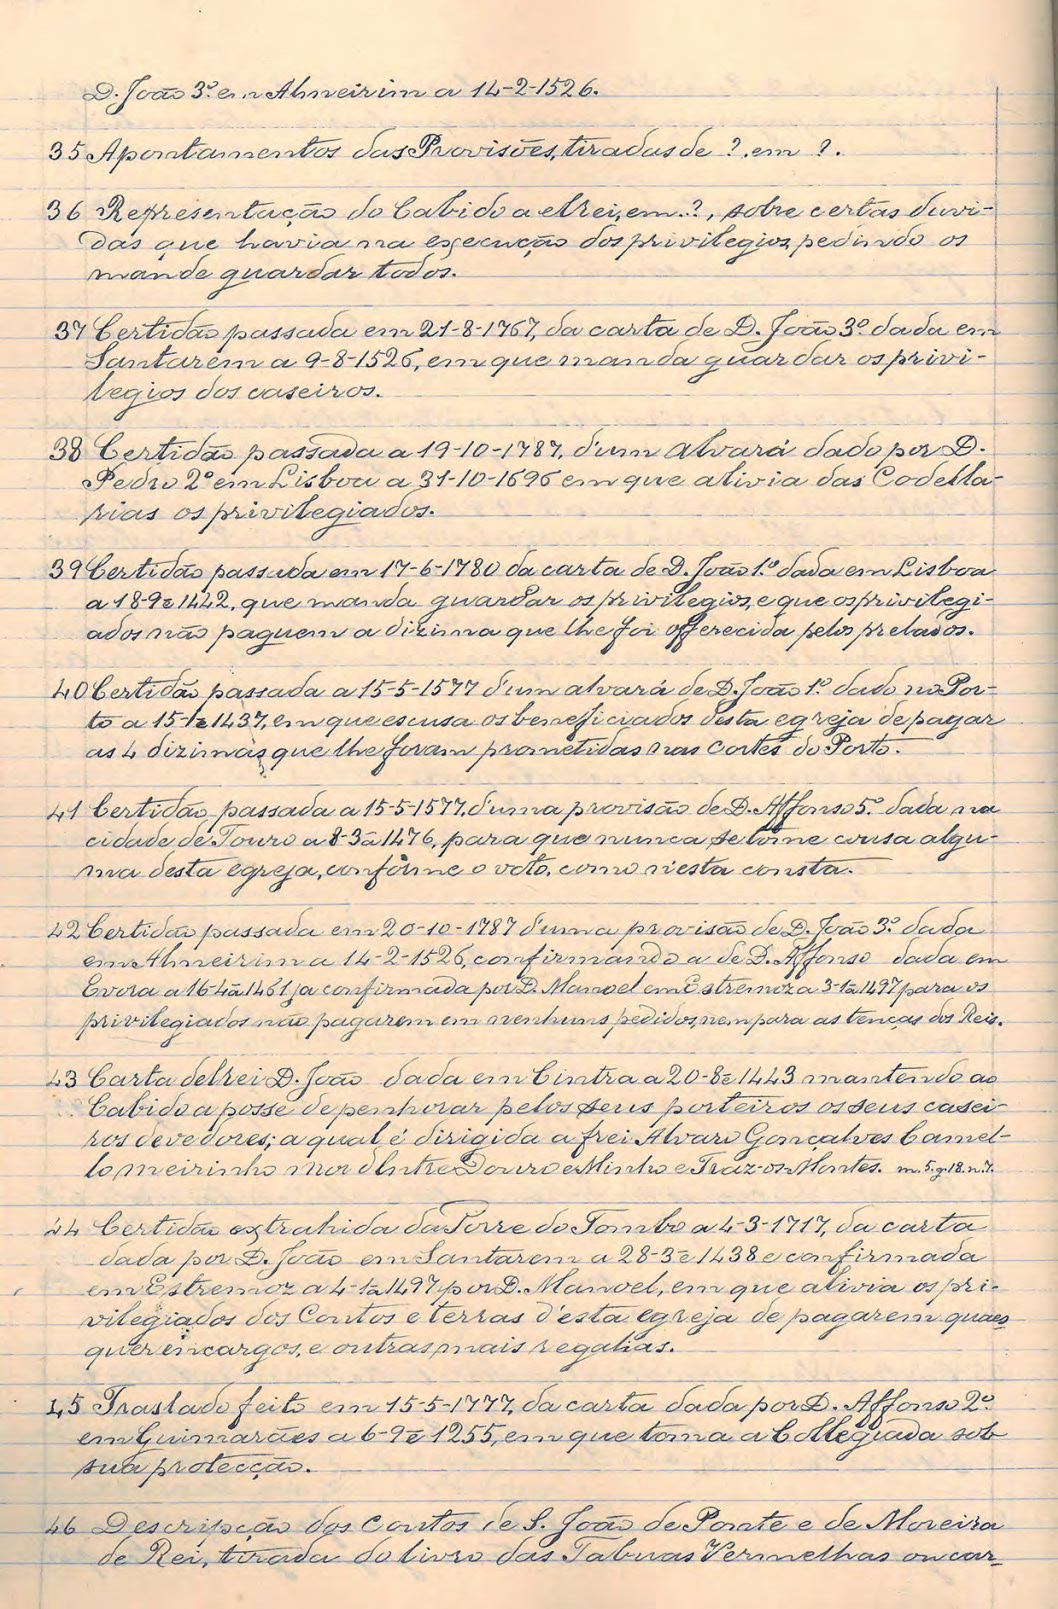 D. João 3º. em Almeirim a 14-2-1526.
35 Apontamentos das Provisões, tiradas de ? em ? .
36 Representação do Cabido a elrei, em..?, sobre certas duvi-
das que havia na execução dos privilegios, pedindo os
mande guardar todos.
37 Certidão passada em 21-8-1767, da carta de D. João 3º. dada em
Santarem a 9-8-1526, em que manda guardar os privi-
legios dos caseiros.
38 Certidão passada a 19-10-1787, d'um alvará dado por D.
Pedro 2º em Lisboa a 31-10-1696 em que alivia das Codella-
rias os privilegiados.
39 Certidão passada em 17-6-1780 da carta de D. João 1º. dada em Lisboa
a 18-9ª 1442, que manda guardar os privilegios, e que os privilegi-
ados não paguem a dizima que lhe foi offerecida pelos prelados.
40 Certidão passada a 15-5-1577 d'um alvará de D. João 1º. dado no Por-
to a 15-1ª 1437, em que escusa os beneficiados desta egreja de pagar
as 4 dizimas que lhe foram prometidas nas cortes do Porto.
41 Certidão passada a 15-5-1577, d'uma provisão de D. Affonso 5º. dada na
cidade de Touro a 8-3ª 1476, para que nunca se tome cousa algu-
ma desta egreja, conforme o voto, como n'esta consta.
42 Certidão passada em 20-10-1787 d'uma provisão de D. João 3º. dada
em Almeirim a 14-2-1526, confirmando a de D. Affonso dada em
Evora a 16-4ª 1461 ja confirmada por D. Manoel em Estremoz a 3-1ª 1497 para os
privilegiados não pagarem em nenhuns pedidos, nem para as tenças dos Reis.
43 Carta delrei D. João dada em Cintra a 20-8ª 1443 mantendo ao
Cabido a posse de penhorar pelos seus porteiros os seus casei-
ros devedores; a qual é dirigida a frei Alvaro Gonçalves Camel-
lo meirinho mor d'Entre Douro e Minho e Traz-os-Montes. m. 5. g. 18. n. 7.
44 Certidão extrahida da Torre do Tombo a 4-3-1717, da carta
dada por D. João em Santarem a 28-3ª 1438 e confirmada
em Estremoz a 4-1ª 1497 por D. Manoel, em que alivia os pri-
vilegiados dos Coutos e terras d'esta egreja de pagarem quaes
quer encargos, e outras mais regalias.
45 Traslado feito em 15-5-1777, da carta dada por D. Affonso 2º.
em Guimarães a 6-9ª 1255, em que toma a Collegiada sob
sua protecção.
46 Descripção dos coutos de S. João de Ponte e de Moreira
de Rei, tirada do livro das Tabuas Vermelhas ou car-